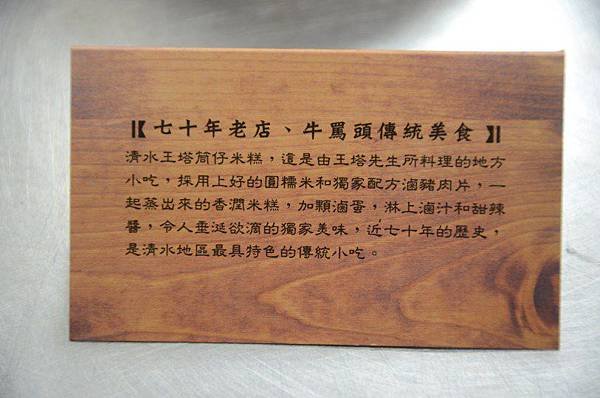 【七十年老店、牛罵頭傳統美食】
清水王塔筒仔米糕，這是由王塔先生所料理的地方
小吃，採用上好的圓糯米和獨家配方滷豬肉片，一
起蒸出來的香潤米糕，加顆滷蛋，淋上滷汁和甜辣
醬，令人垂涎欲滴的獨家美味，近七十年的歷史，
是清水地區最具特色的傳統小吃。